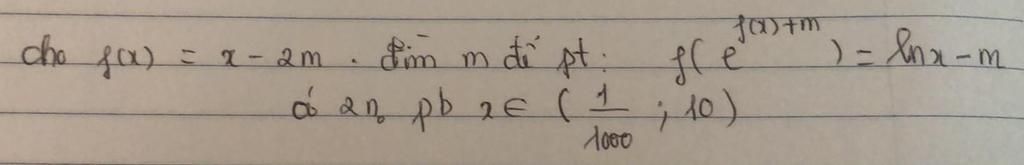 cho f(x) = x - 2m . tìm m để pt: f(e^{f(x)+m}) = lnx - m
có 2n₀ pb x ∈ (1/1000 ; 10)